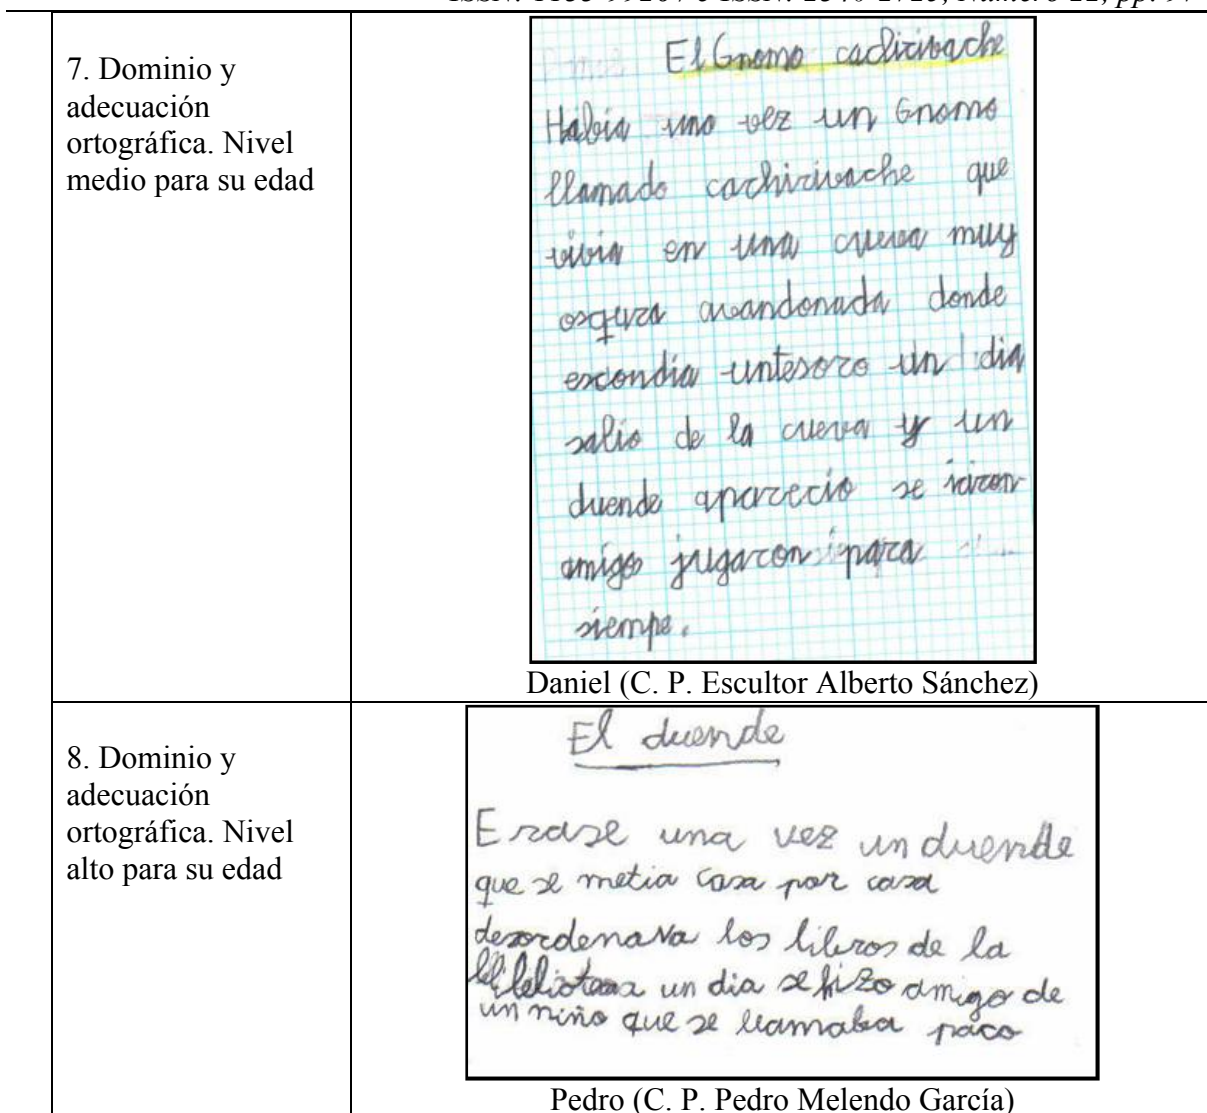 7. Dominio y
adecuación
ortográfica. Nivel
medio para su edad
El Gnomo cachirivache
Había una vez un Gnomo
llamado cachirivache que
vivia en una cueva muy
osqura avandonada donde
escondia untesoro un dia
salio de la cueva y un
duende aparecio se iciron
amigos jugaron para
siempe.
Daniel (C. P. Escultor Alberto Sánchez)
8. Dominio y
adecuación
ortográfica. Nivel
alto para su edad
El duende
Erase una vez un duende
que se metia casa por casa
desordenava los libros de la
un dia se hizo amigo de
un niño que se llamaba paco
Pedro (C. P. Pedro Melendo García)